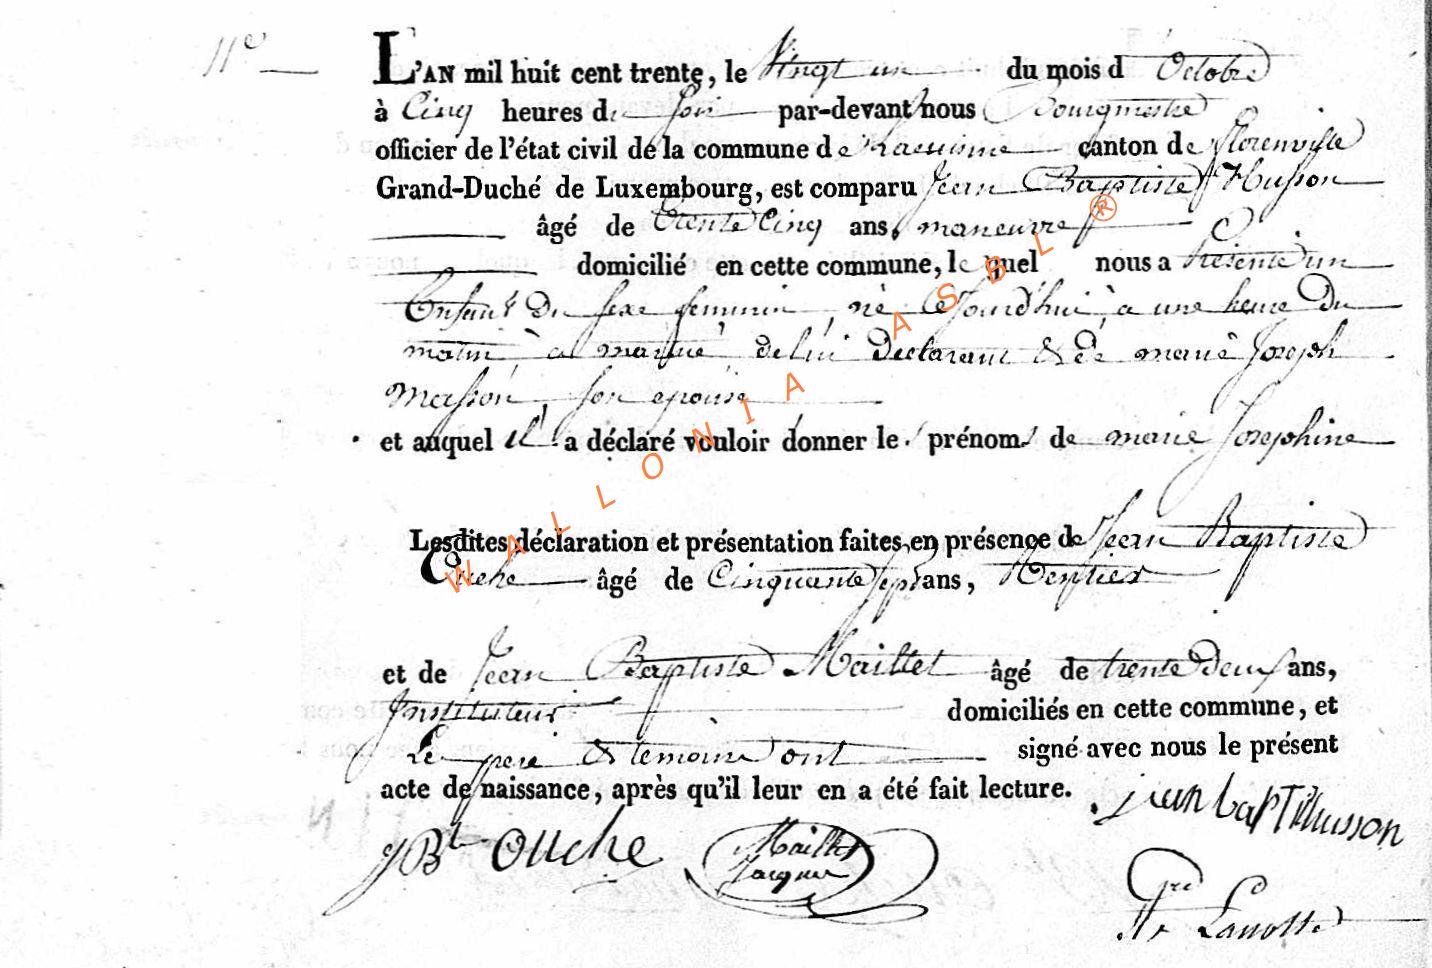 11e
L'AN mil huit cent trente, le Vingt un du mois d Octobre
à Cinq heures du Soir par-devant nous Bourgmestre
officier de l'état civil de la commune de Lacuisine canton de Florenville
Grand-Duché de Luxembourg, est comparu Jean Baptiste Husson
âgé de trente Cinq ans, manœuvre
domicilié en cette commune, le quel nous a Présenté un
Enfant Du sexe feminin, né Cejourd'hui à une heure Du
matin, de lui Déclarant & de marie Joseph
Masson, son épouse
et auquel il a déclaré vouloir donner les prénoms de marie Josephine
Lesdites déclaration et présentation faites en présence de Jean Baptiste
Ouche âgé de Cinquante Sept ans, Rentier
et de Jean Baptiste Maillet âgé de trente Deux ans,
Instituteur domiciliés en cette commune, et
Le pere & temoins ont signé avec nous le présent
acte de naissance, après qu'il leur en a été fait lecture.
jean bapt husson
JBte Ouche
Maillet
Jacques
Lanotte
WALLONIA ASBL ®